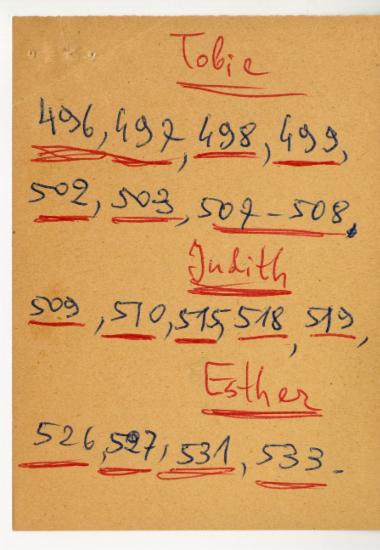 Tobie
496, 497, 498, 499,
502, 503, 507-508,
Judith
509, 510, 515, 518, 519,
Esther
526, 527, 531, 533.